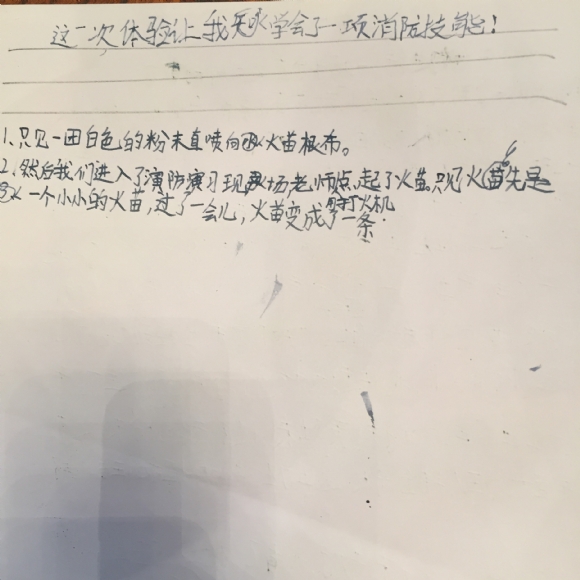 这一次体验让我学会了一项消防技能!
1、只见一团白色的粉末直喷向火苗根布。
2、然后我们进入了演防演习现场老师点起了火苗只见火苗先是
一个小小的火苗,过了一会儿,火苗变成了一条
用打火机